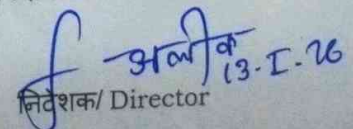 अलीक
13-I-26
निदेशक/ Director